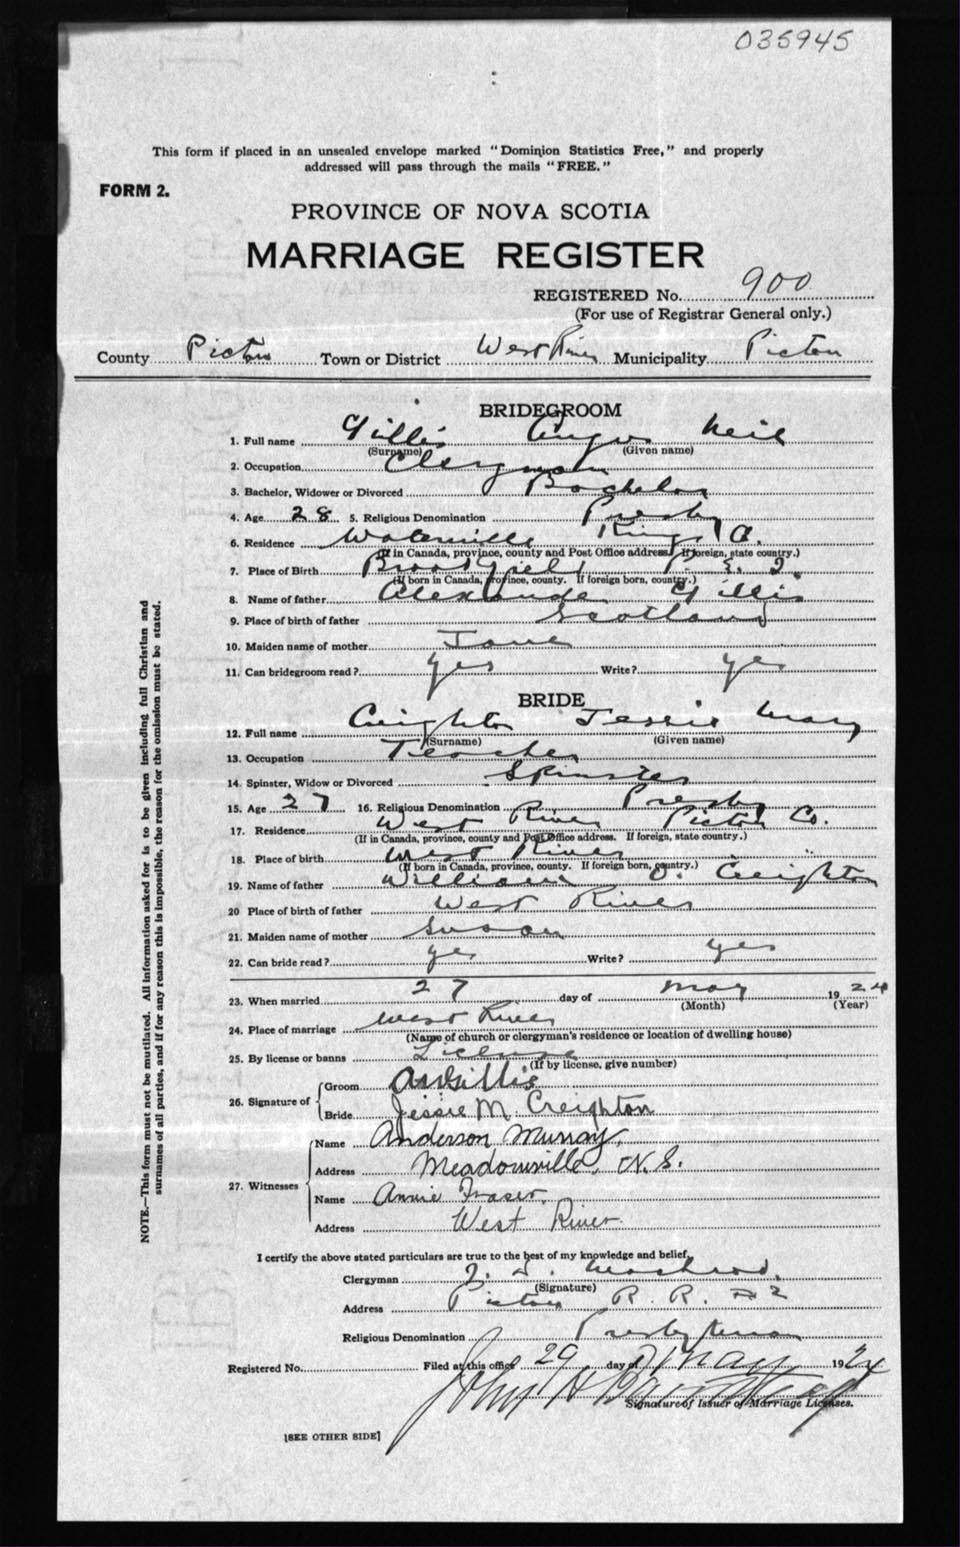 035945
This form if placed in an unsealed envelope marked "Dominion Statistics Free," and properly
addressed will pass through the mails "FREE."
FORM 2.
PROVINCE OF NOVA SCOTIA
MARRIAGE REGISTER
REGISTERED No. 900
(For use of Registrar General only.)
County Pictou Town or District West River Municipality Pictou
BRIDEGROOM
1. Full name Gillis Angus Neil
(Surname) (Given name)
2. Occupation Clergyman
3. Bachelor, Widower or Divorced Bachelor
4. Age 28 5. Religious Denomination Presby
6. Residence Waterville Kings Co.
(If in Canada, province, county and Post Office address. If foreign, state country.)
7. Place of Birth Brookfield P. E. I
(If born in Canada, province, county. If foreign born, country.)
8. Name of father Alexander Gillis
9. Place of birth of father Scotland
10. Maiden name of mother Jane
11. Can bridegroom read? yes Write? yes
BRIDE
12. Full name Creighton Jessie Mary
(Surname) (Given name)
13. Occupation Teacher
14. Spinster, Widow or Divorced Spinster
15. Age 27 16. Religious Denomination Presby
17. Residence West River Pictou Co.
(If in Canada, province, county and Post Office address. If foreign, state country.)
18. Place of birth West River "
(If born in Canada, province, county. If foreign born, country.)
19. Name of father William O. Creighton
20 Place of birth of father West River
21. Maiden name of mother Susan
22. Can bride read? yes Write? yes
23. When married 27 day of May 1924
(Month) (Year)
24. Place of marriage West River
(Name of church or clergyman's residence or location of dwelling house)
25. By license or banns License
(If by license, give number)
26. Signature of Groom A N Gillis
Bride Jessie M. Creighton
27. Witnesses Name Anderson Murray.
Address Meadowville, N.S.
Name Annie Fraser.
Address West River.
I certify the above stated particulars are true to the best of my knowledge and belief,
Clergyman
(Signature)
Address Pictou R. R. #2
Religious Denomination Presbyterian
Registered No. Filed at this office 29 day of May 1924
John H
Signature of Issuer of Marriage Licenses.
[SEE OTHER SIDE]
NOTE.—This form must not be mutilated. All information asked for is to be given including full Christian and
surnames of all parties, and if for any reason this is impossible, the reason for the omission must be stated.